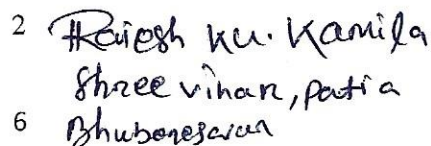 2 Rajesh Ku. Kamila
Shree vihar, patia
6 Bhubaneswar